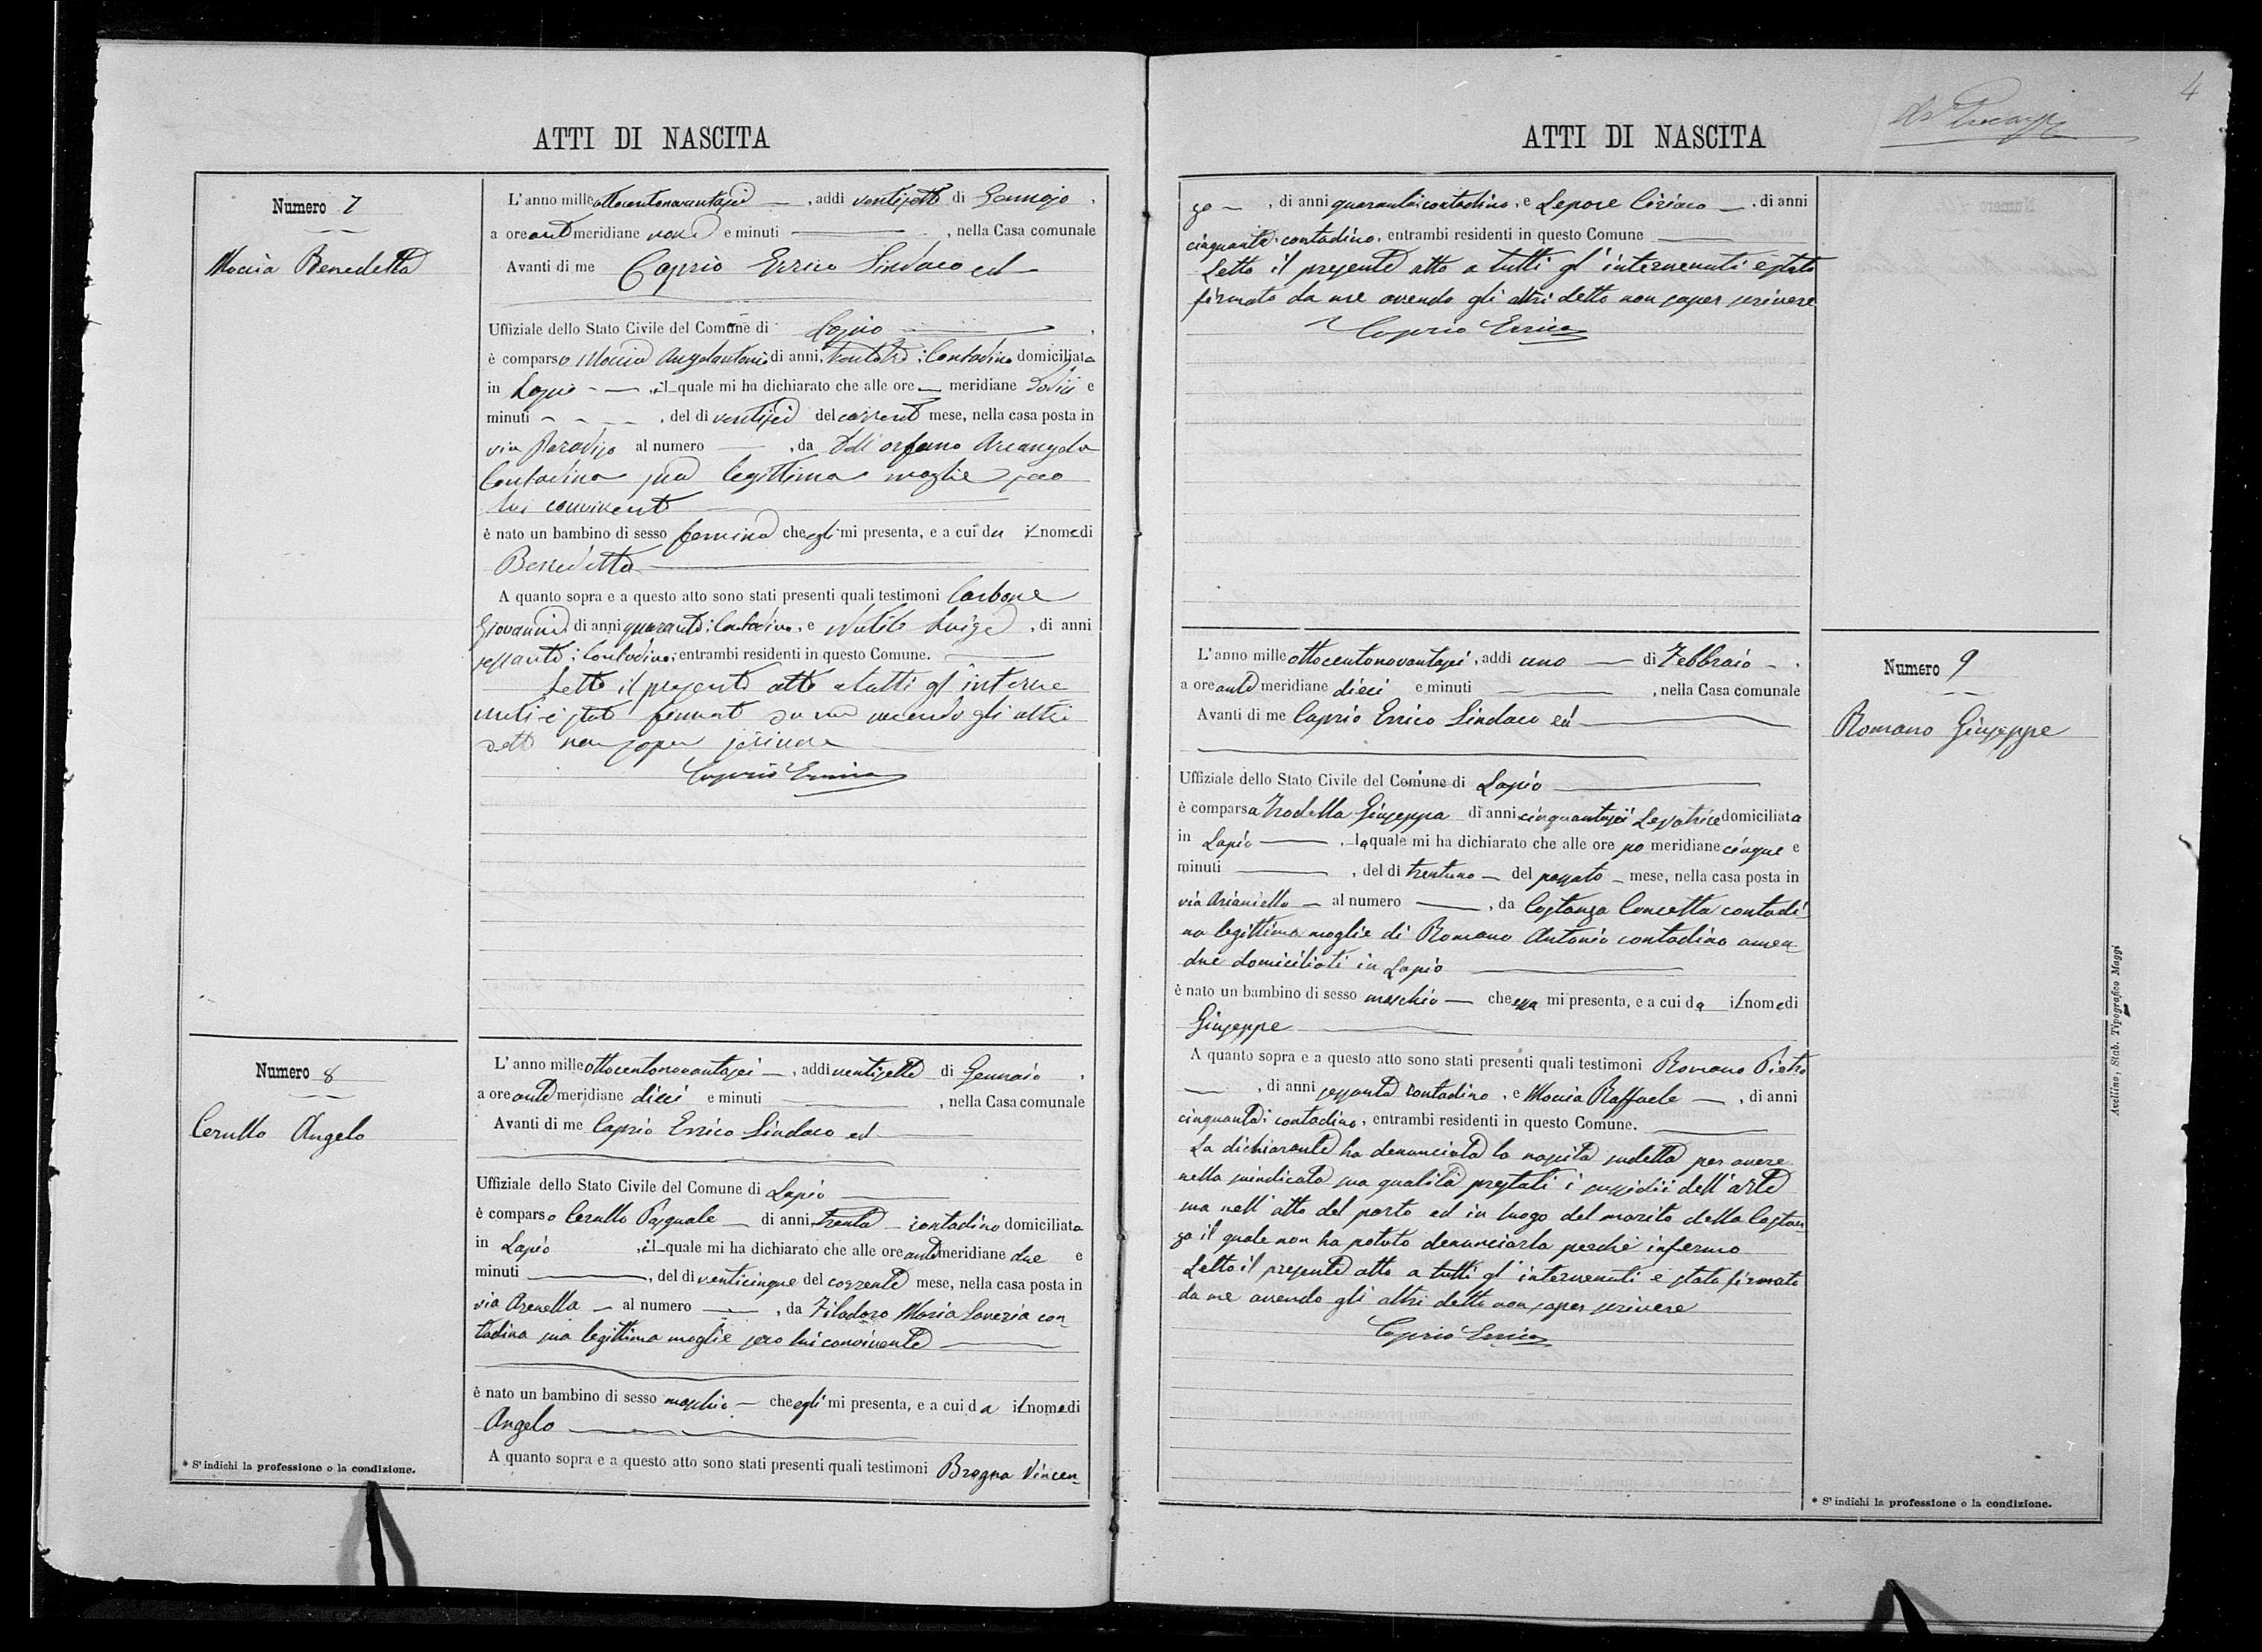 4
ATTI DI NASCITA
Numero 7
Moccia Benedetta
L'anno mille ottocentonovantasei, addi ventisette di Gennajo,
a ore ante meridiane nove e minuti , nella Casa comunale
Avanti di me Caprio Errico Sindaco ed
Uffiziale dello Stato Civile del Comune di Lapio
è comparso Moccia Angelantonio di anni trentatre; Contadino domiciliato
in Lapio , il quale mi ha dichiarato che alle ore meridiane dodici e
minuti , del di ventisei del corrente mese, nella casa posta in
via Paradiso al numero , da Dell'orfano Arcangela
Contadina sua legittima moglie seco
lui convivente
è nato un bambino di sesso feminino che egli mi presenta, e a cui da il nome di
Benedetta
A quanto sopra e a questo atto sono stati presenti quali testimoni Carbone
Giovanni di anni quaranta; Contadino, e Luigi , di anni
sessanta; Contadino; entrambi residenti in questo Comune.
Letto il presente atto a tutti gl'interve
nuti è stato firmato da me avendo gli altri
detto non saper scrivere
Caprio Errico
Numero 8
Cerullo Angelo
L'anno mille ottocentonovantasei, addi ventisette di Gennaio,
a ore ante meridiane dieci e minuti , nella Casa comunale
Avanti di me Caprio Errico Sindaco ed
Uffiziale dello Stato Civile del Comune di Lapio
è comparso Cerullo Pasquale di anni trenta contadino domiciliato
in Lapio , il quale mi ha dichiarato che alle ore ante meridiane due e
minuti , del di venticinque del corrente mese, nella casa posta in
via Arenella al numero , da Filadoro Maria Saveria con-
tadina sua legittima moglie seco lui convivente
è nato un bambino di sesso maschio che egli mi presenta, e a cui da il nome di
Angelo
A quanto sopra e a questo atto sono stati presenti quali testimoni Brogna Vincen-
* S'indichi la professione o la condizione.
ATTI DI NASCITA
zo , di anni quaranta; contadino, e Lepore Ciriaco , di anni
cinquanta; contadino, entrambi residenti in questo Comune
Letto il presente atto a tutti gl'intervenuti è stato
firmato da me avendo gli altri detto non saper scrivere
Caprio Errico
Numero 9
Romano Giuseppe
L'anno mille ottocentonovantasei, addi uno di Febbraio
a ore ante meridiane dieci e minuti , nella Casa comunale
Avanti di me Caprio Errico Sindaco ed
Uffiziale dello Stato Civile del Comune di Lapio
è comparsa Giuseppa di anni cinquantasei Levatrice domiciliata
in Lapio , la quale mi ha dichiarato che alle ore po meridiane cinque e
minuti , del di trentuno del passato mese, nella casa posta in
via Arianiello al numero , da Costanza Concetta contadi-
na legittima moglie di Romano Antonio contadino amen-
due domiciliati in Lapio
è nato un bambino di sesso maschio che essa mi presenta, e a cui da il nome di
Giuseppe
A quanto sopra e a questo atto sono stati presenti quali testimoni Romano Pietro
, di anni sessanta contadino, e Moccia Raffaele , di anni
cinquanta; contadino, entrambi residenti in questo Comune.
La dichiarante ha denunciata la nascita sudetta per avere
nella suindicata sua qualità prestati i sussidii dell'arte
sua nell'atto del parto ed in luogo del marito della Costan
za il quale non ha potuto denunciarla perchè infermo
Letto il presente atto a tutti gl'intervenuti è stato firmato
da me avendo gli altri detto non saper scrivere
Caprio Errico
* S'indichi la professione o la condizione.
Avellino, Stab. Tipografico Maggi